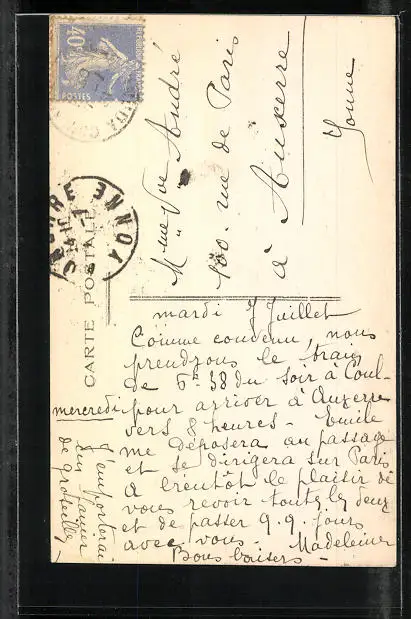 40c
POSTES
YONNE
CARTE POSTALE
Mme Vve André
100. rue de Paris
à Auxerre
Yonne
mardi 7 Juillet
Comme convenu, nous
prendrons le train
de 6h 38 du soir à Coul-
mercredi pour arriver à Auxerre
vers 8 heures - Emile
me déposera au passage
et se dirigera sur Paris
A bientôt le plaisir de
vous revoir toutes les deux
et de passer q.q. jours
avec vous. Madeleine
Bons baisers -
J'emporterai
un panier
de groseilles